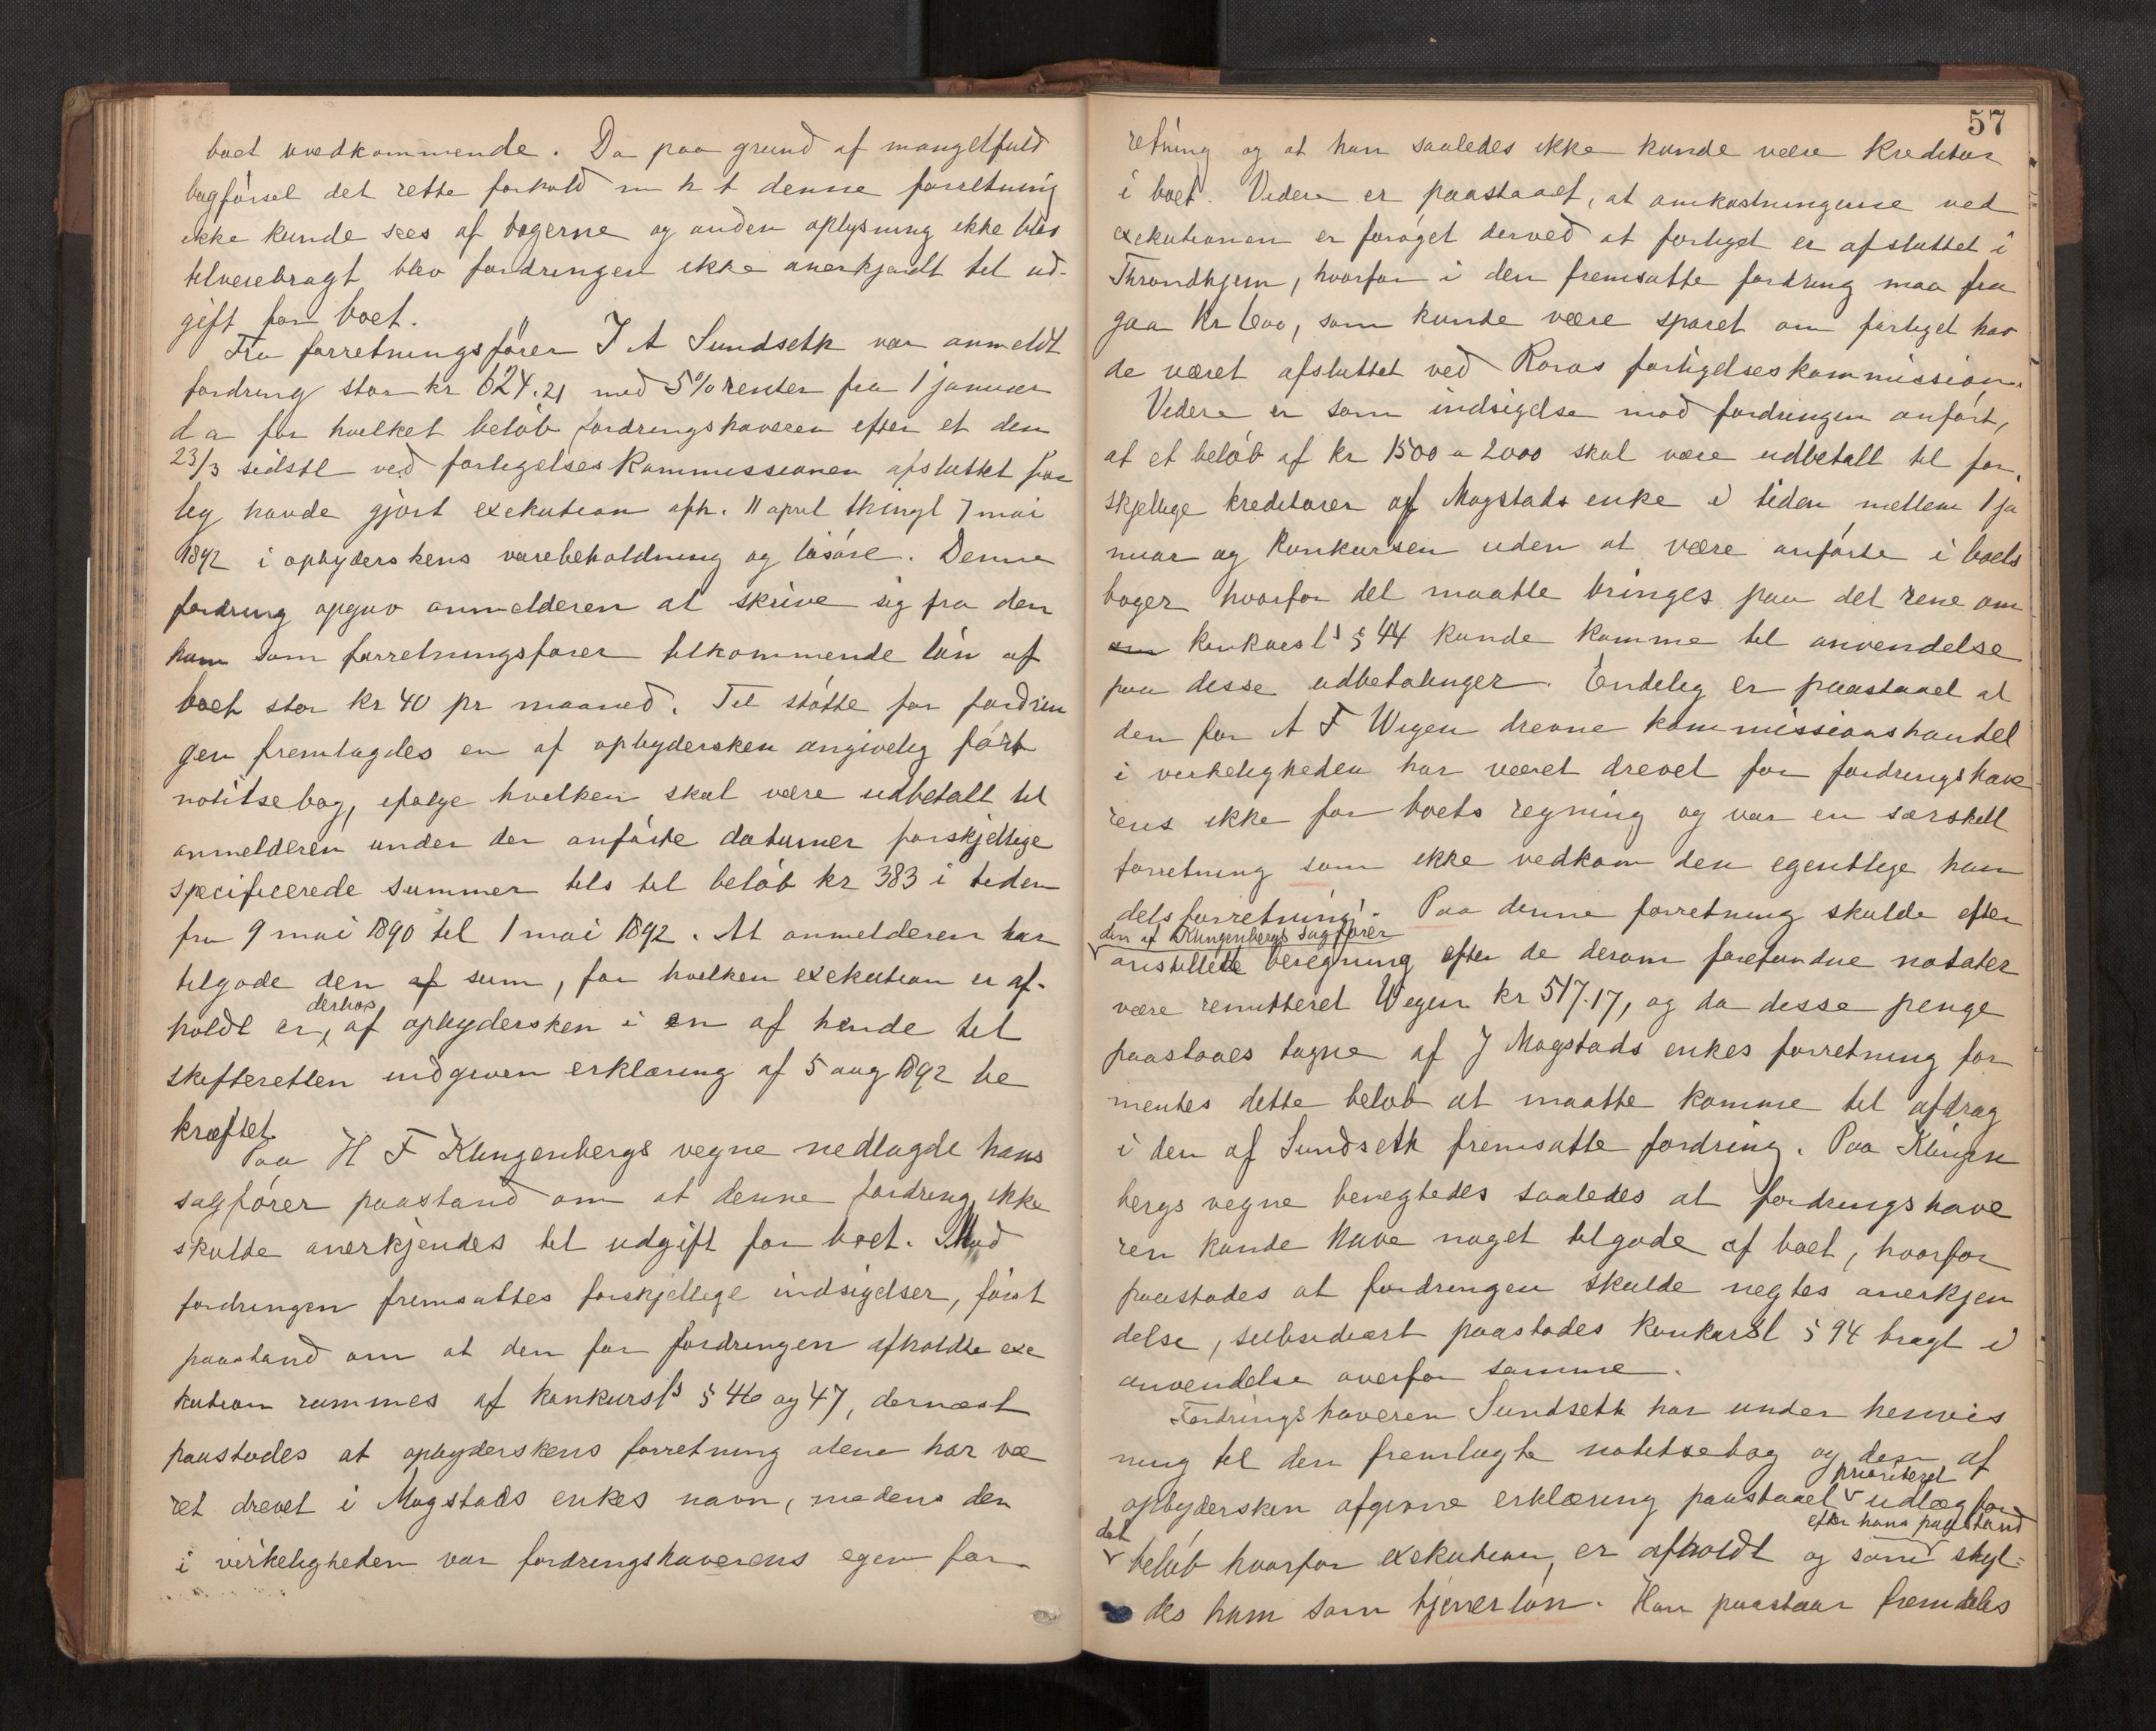 boet uvedkommende. Da paa grund af mangelfuld
bogførsel det rette forhold m h t denne forretning
ikke kunde sees af bøgerne og anden oplysning ikke blev
tilveiebragt blev fordringen ikke anerkjendt til ud-
gift for boet.
Fra forretningsfører J A Sundseth var anmeldt
fordring stor kr 624.21 med 5% renter fra 1 januar
d a for hvilket beløb fordringshaveren efter et den
23/3 sidstl ved forligelseskommissionen afsluttet for
lig havde gjort exekution afh. 11 april thingl 7 mai
1892 i opbyderskens varebeholdning og løsøre. Denne
fordring opgav anmelderen at skrive sig fra den
ham som forretningsfører tilkommende løn af
boet stor kr 40 pr maaned. Til støtte for fordrin
gen fremlagdes en af opbydersken angivelig ført
notitsebog, ifølge hvilken skal være udbetalt til
anmelderen under der anførte datumer forskjellige
specificerede summer tils til beløb kr 383 i tiden
fra 9 mai 1890 til 1 mai 1892. At anmelderen har
tilgode den af sum, for hvilken exekution er af-
derhos
holdt er, af opbydersken i en af hende til
skifteretten indgiven erklæring af 5 aug 1892 be
kræftet.
Paa H F Klingenbergs vegne nedlagde hans
sagfører paastand om at denne fordring ikke
skulde anerkjendes til udgift for boet. Mod
fordringen fremsattes forskjellige indsigelser, først
paastand om at den for fordringen afholdte exe
kution rammes af konkursls § 46 og 47, dernæst
paastodes at opbyderskens forretning alene har væ
ret drevet i Mogstads enkes navn, medens den
i virkeligheden var fordringshaverens egen for
57
retning og at han saaledes ikke kunde være kreditor
i boet. Videre er paastaaet, at omkostningerne ved
exekutionen er forøget derved at forliget er afsluttet i
Throndhjem, hvorfor i den fremsatte fordring maa fra
gaa kr 6oo, som kunde være sparet om forliget hav
de været afsluttet ved Røros forligelseskommission.
Videre er som indsigelse mod fordringen anført,
at et beløb af kr 1500 a 2000 skal være udbetalt til for
skjellige kreditorer af Mogstads enke i tiden mellem 1 ja
nuar og konkursen uden at være anførte i boets
bøger hvorfor det maatte bringes paa det rene om
om konkursls § 44 kunde komme til anvendelse
paa disse udbetalinger. Endelig er paastaaet at
den for A F Wigen drevne kommissionshandel
i virkeligheden har været drevet for fordringshave
rens ikke for boets regning og var en særskilt
forretning som ikke vedkom den egentlige han
delsforretning. Paa denne forretning skulde efter
den af Klingenbergs sagfører
anstillede beregning efter de derom forefundne notater
være remitteret Wigen kr 517.17, og da disse penge
paastaaes tagne af J Mogstads enkes forretning for
mentes dette beløb at maatte komme til afdrag
i den af Sundseth fremsatte fordring. Paa Klingen
bergs vegne benegtedes saaledes at fordringshave
ren kunde have noget tilgode af boet, hvorfor
paastodes at fordringen skulde negtes anerkjen
delse, subsidiært paastodes konkursl § 94 bragt i
anvendelse overfor samme.
Fordringshaveren Sundseth har under henvis
ning til den fremlagte notitsebog og den af
prioriteret
opbydersken afgivne erklæring paastaaet udlæg for
det
efter hans paastand
beløb hvorfor exekution, er afholdt og som skyl=
des ham som tjenerløn. Han paastaar fremdeles